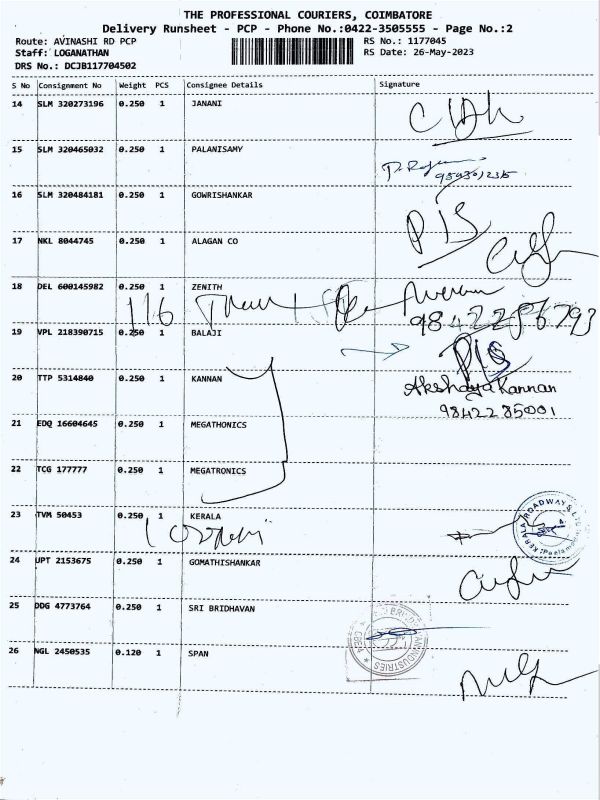 THE PROFESSIONAL COURIERS, COIMBATORE
Delivery Runsheet - PCP - Phone No.:0422-3505555 - Page No.:2
Route: AVINASHI RD PCP
Staff: LOGANATHAN
DRS No.: DCJB117704502
RS No.: 1177045
RS Date: 26-May-2023
S No Consignment No Weight PCS Consignee Details Signature
14 SLM 320273196 0.250 1 JANANI
15 SLM 320465032 0.250 1 PALANISAMY
16 SLM 320484181 0.250 1 GOWRISHANKAR
PIS
17 NKL 8044745 0.250 1 ALAGAN CO
18 DEL 600145982 0.250 1 ZENITH
116
9842286793
19 VPL 218390715 0.250 1 BALAJI
PIS
20 TTP 5314840 0.250 1 KANNAN
Akshaya Kannan
9842285001
21 EDQ 16604645 0.250 1 MEGATHONICS
22 TCG 177777 0.250 1 MEGATRONICS
23 TVM 50453 0.250 1 KERALA
KERALA ROADWAYS LTD
24 UPT 2153675 0.250 1 GOMATHISHANKAR
25 DDG 4773764 0.250 1 SRI BRIDHAVAN
INDUSTRIES
26 NGL 2450535 0.120 1 SPAN